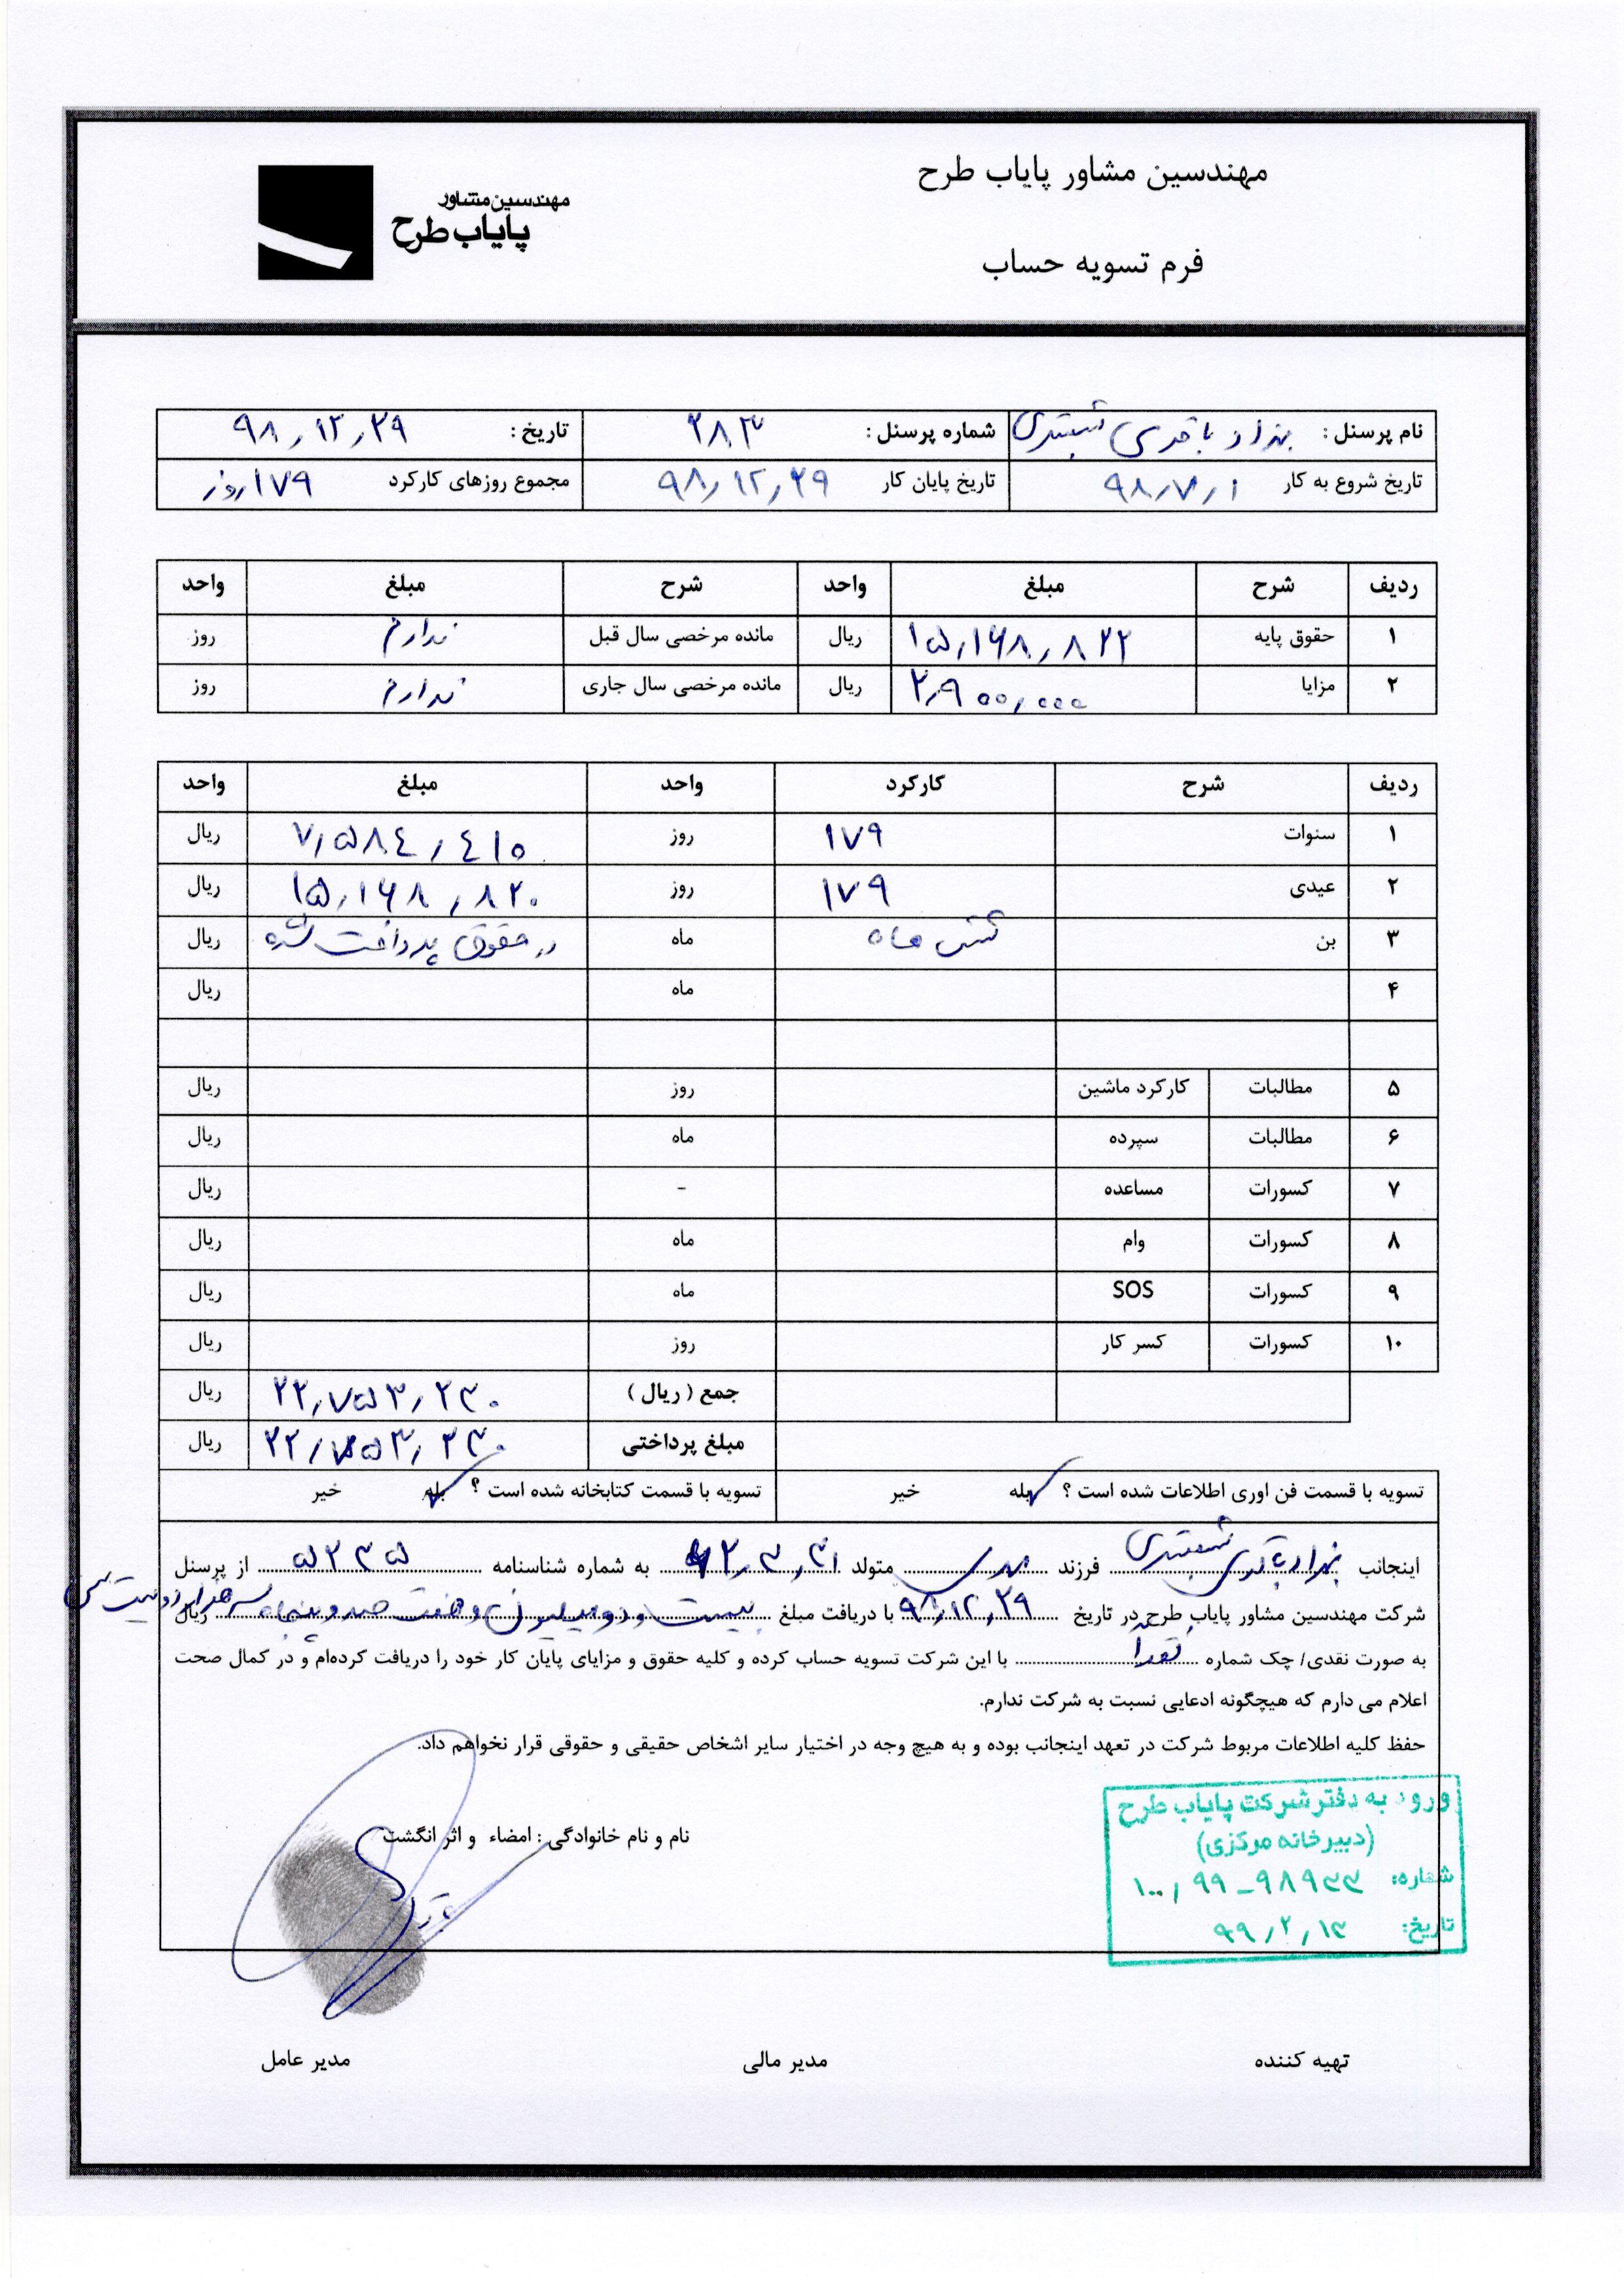 مهندسین مشاور پایاب طرح
مهندسین مشاور
پایاب طرح
فرم تسویه حساب
نام پرسنل : بهزاد باقری شبستری شماره پرسنل : ۲۸۳ تاریخ : ۹۸,۱۲,۲۹
تاریخ شروع به کار ۹۸,۷,۱ تاریخ پایان کار ۹۸,۱۲,۲۹ مجموع روزهای کارکرد ۱۷۹ روز
ردیف شرح مبلغ واحد شرح مبلغ واحد
۱ حقوق پایه ۱۵,۱۶۸,۸۲۲ ریال مانده مرخصی سال قبل ندارم روز
۲ مزایا ۲,۹۰۰,۰۰۰ ریال مانده مرخصی سال جاری ندارم روز
ردیف شرح کارکرد واحد مبلغ واحد
۱ سنوات ۱۷۹ روز ۷,۵۸۴,۴۱۰ ریال
۲ عیدی ۱۷۹ روز ۱۵,۱۶۸,۸۲۰ ریال
۳ بن شش ماه ماه در حقوق پرداخت شده ریال
۴ ماه ریال
۵ مطالبات کارکرد ماشین روز ریال
۶ مطالبات سپرده ماه ریال
۷ کسورات مساعده - ریال
۸ کسورات وام ماه ریال
۹ کسورات SOS ماه ریال
۱۰ کسورات کسر کار روز ریال
جمع ( ریال ) ۲۲,۷۵۳,۲۳۰ ریال
مبلغ پرداختی ۲۲,۷۵۳,۲۳۰ ریال
تسویه با قسمت فن اوری اطلاعات شده است ؟ بله خیر تسویه با قسمت کتابخانه شده است ؟ بله خیر
اینجانب بهزاد باقری شبستری فرزند متولد به شماره شناسنامه ۵۲۳۵ از پرسنل
شرکت مهندسین مشاور پایاب طرح در تاریخ ۹۸,۱۲,۲۹ با دریافت مبلغ بیست و دو میلیون و هفت صد و پنجاه سه هزار و دویست سی ریال
به صورت نقدی/ چک شماره نقداً با این شرکت تسویه حساب کرده و کلیه حقوق و مزایای پایان کار خود را دریافت کرده‌ام و در کمال صحت
اعلام می دارم که هیچگونه ادعایی نسبت به شرکت ندارم.
حفظ کلیه اطلاعات مربوط شرکت در تعهد اینجانب بوده و به هیچ وجه در اختیار سایر اشخاص حقیقی و حقوقی قرار نخواهم داد.
نام و نام خانوادگی : امضاء و اثر انگشت
ورود به دفتر شرکت پایاب طرح
(دبیرخانه مرکزی)
شماره: ۱۰۰,۹۹-۹۸۹۳۳
تاریخ: ۹۹,۲,۱۳
تهیه کننده مدیر مالی مدیر عامل